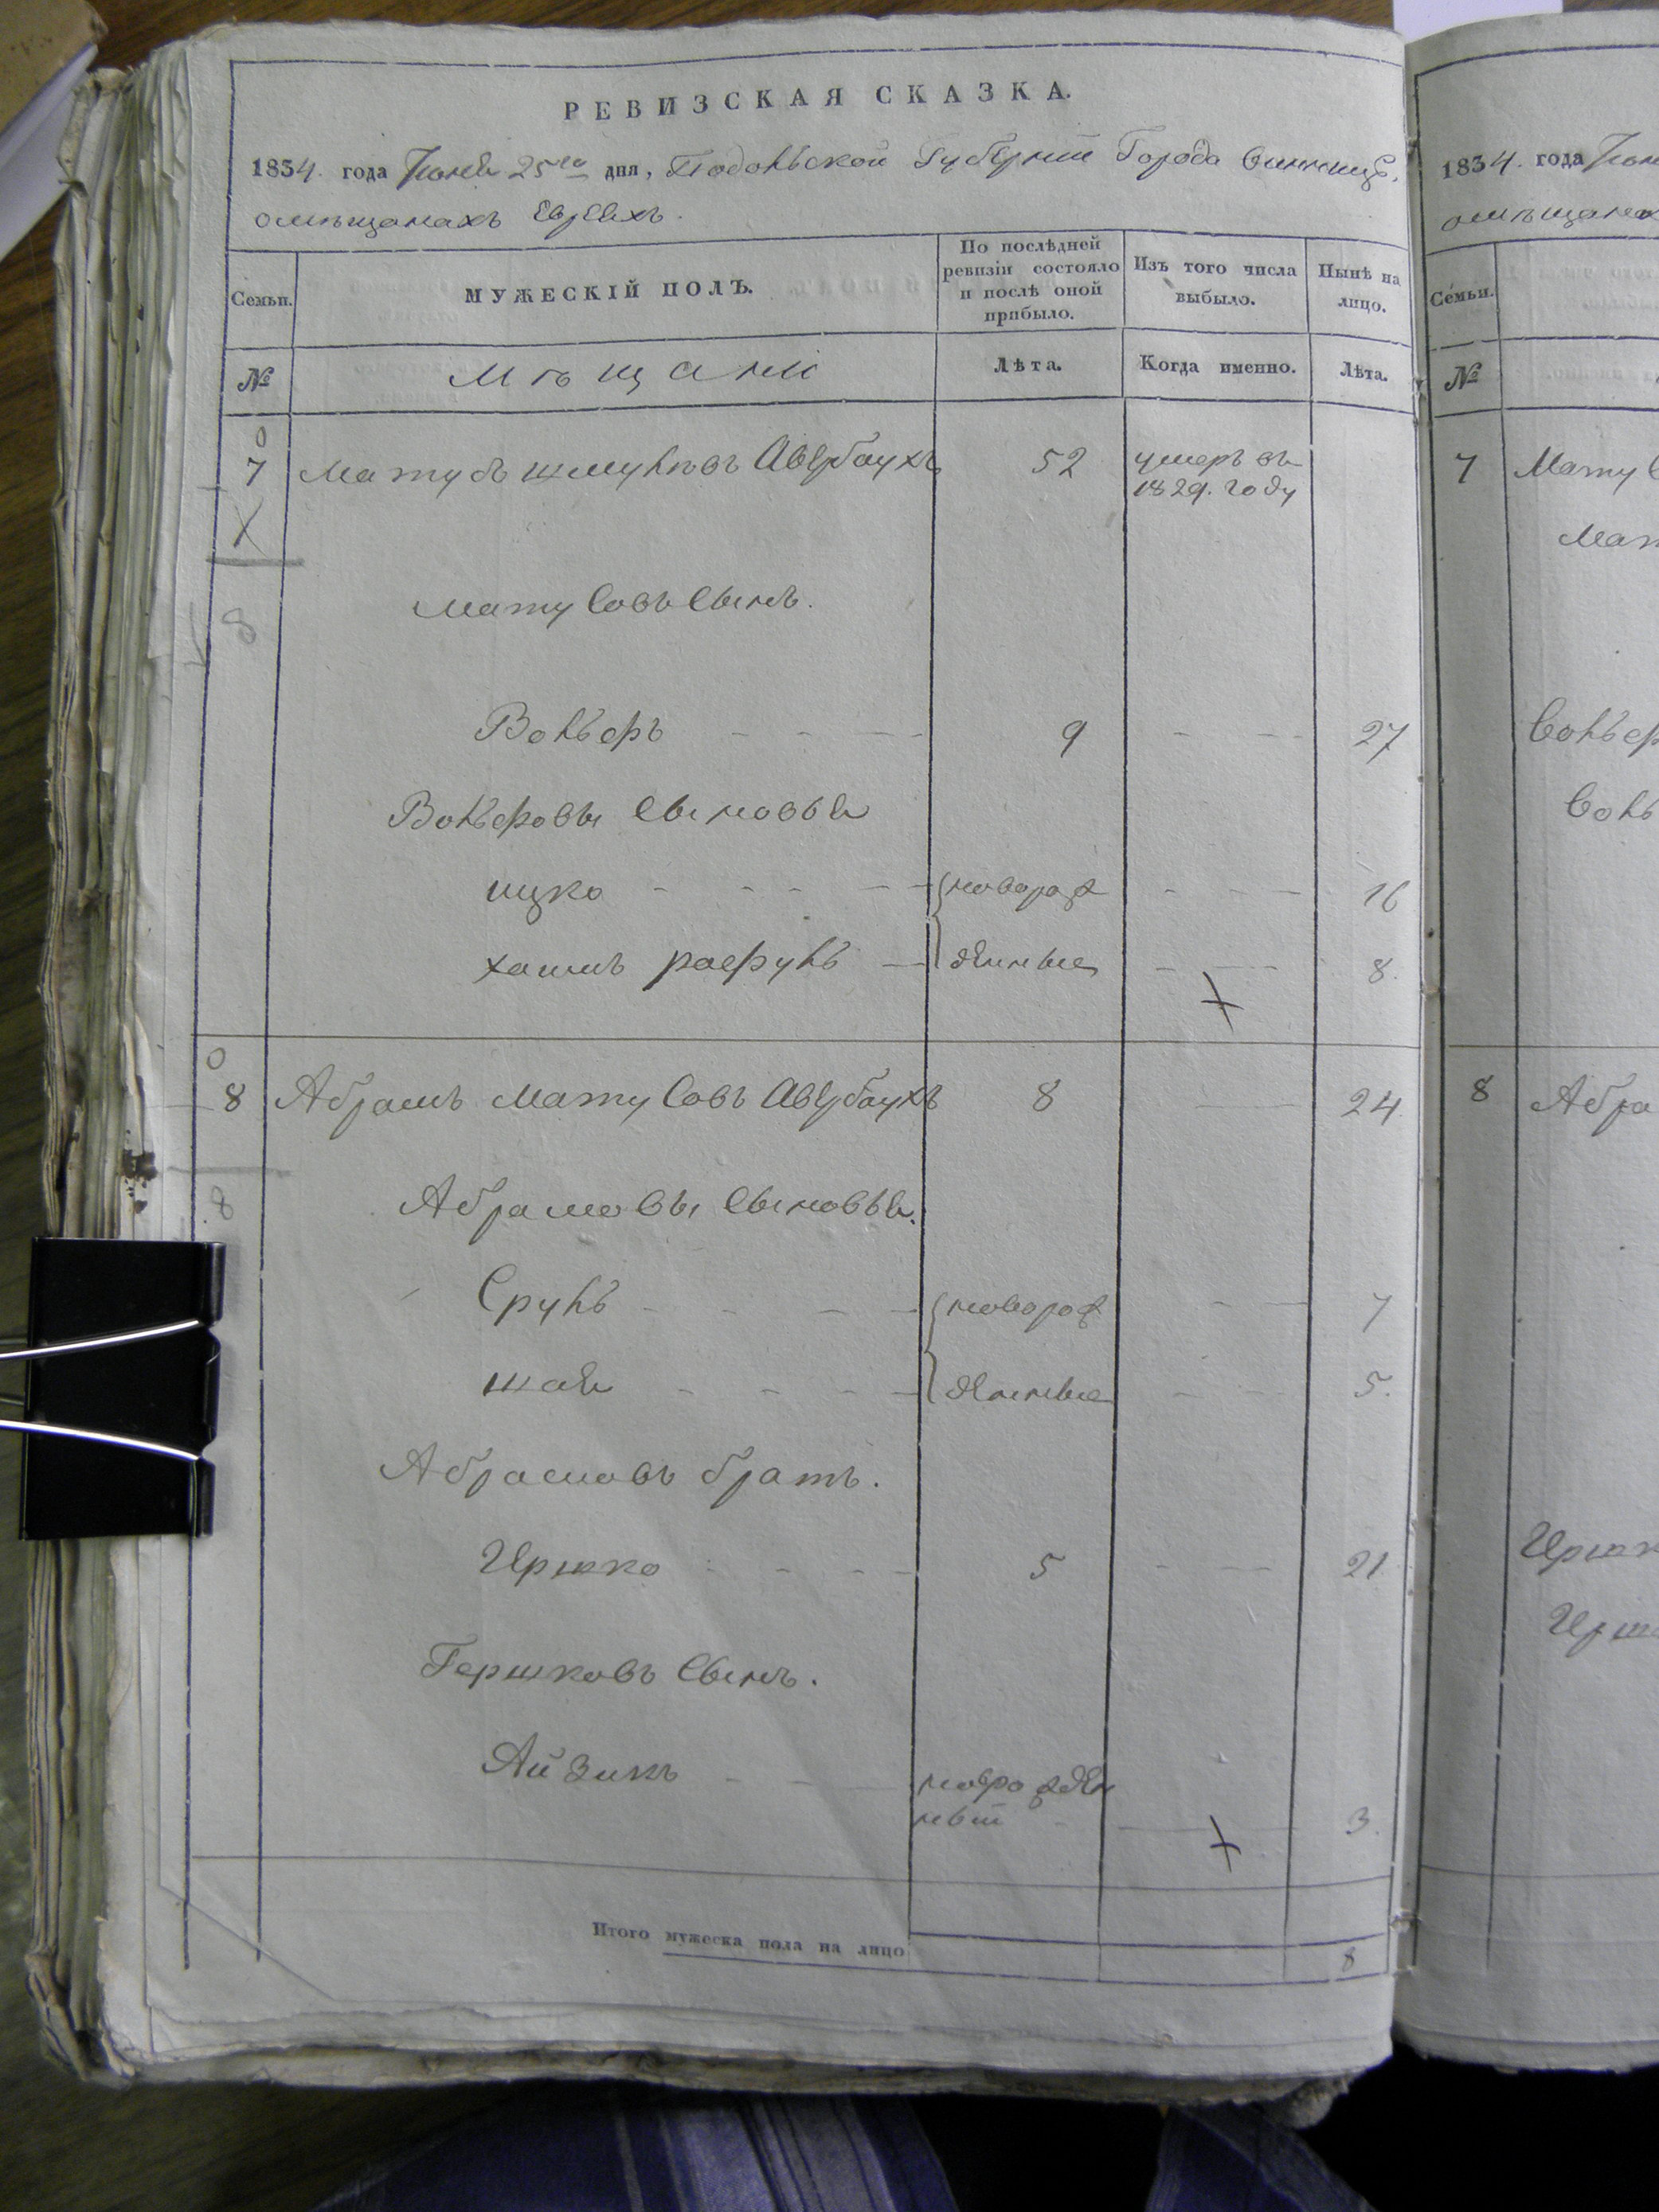 РЕВИЗСКАЯ СКАЗКА.
1834. года Іюня 25го дня, Подольской Губерніи Города Винницы,
омѣщанахъ Евреяхъ.
Семьи.
МУЖЕСКІЙ ПОЛЪ.
По послѣдней ревизіи состояло и послѣ оной прибыло.
Изъ того числа выбыло.
Нынѣ на лицо.
№ мѣщане Лѣта. Когда именно. Лѣта.
0
7 Матусъ шмулѣвъ Авербаухъ 52 умеръ въ
1829. году
X
Матусовъ Сынъ.
8
Вольеръ 9 27
Вольеровы Сыновья
ицко новорож 16
хаимъ рафулъ денные 8.
0
8 Абрамъ Матусовъ Авербаухъ 8 24.
8
Абрамовы Сыновья.
Сруль новорож 7
шая денные 5.
Абрамовъ братъ.
Гершко 5 21
Гершковъ Сынъ.
Айзикъ новрожден
ный 3.
Итого мужеска пола на лицо 8
1834. года Іюн
омѣщанах
Семьи.
№
7 Матус
Мат
Вольер
Воль
8 Абра
Гершк
Герш